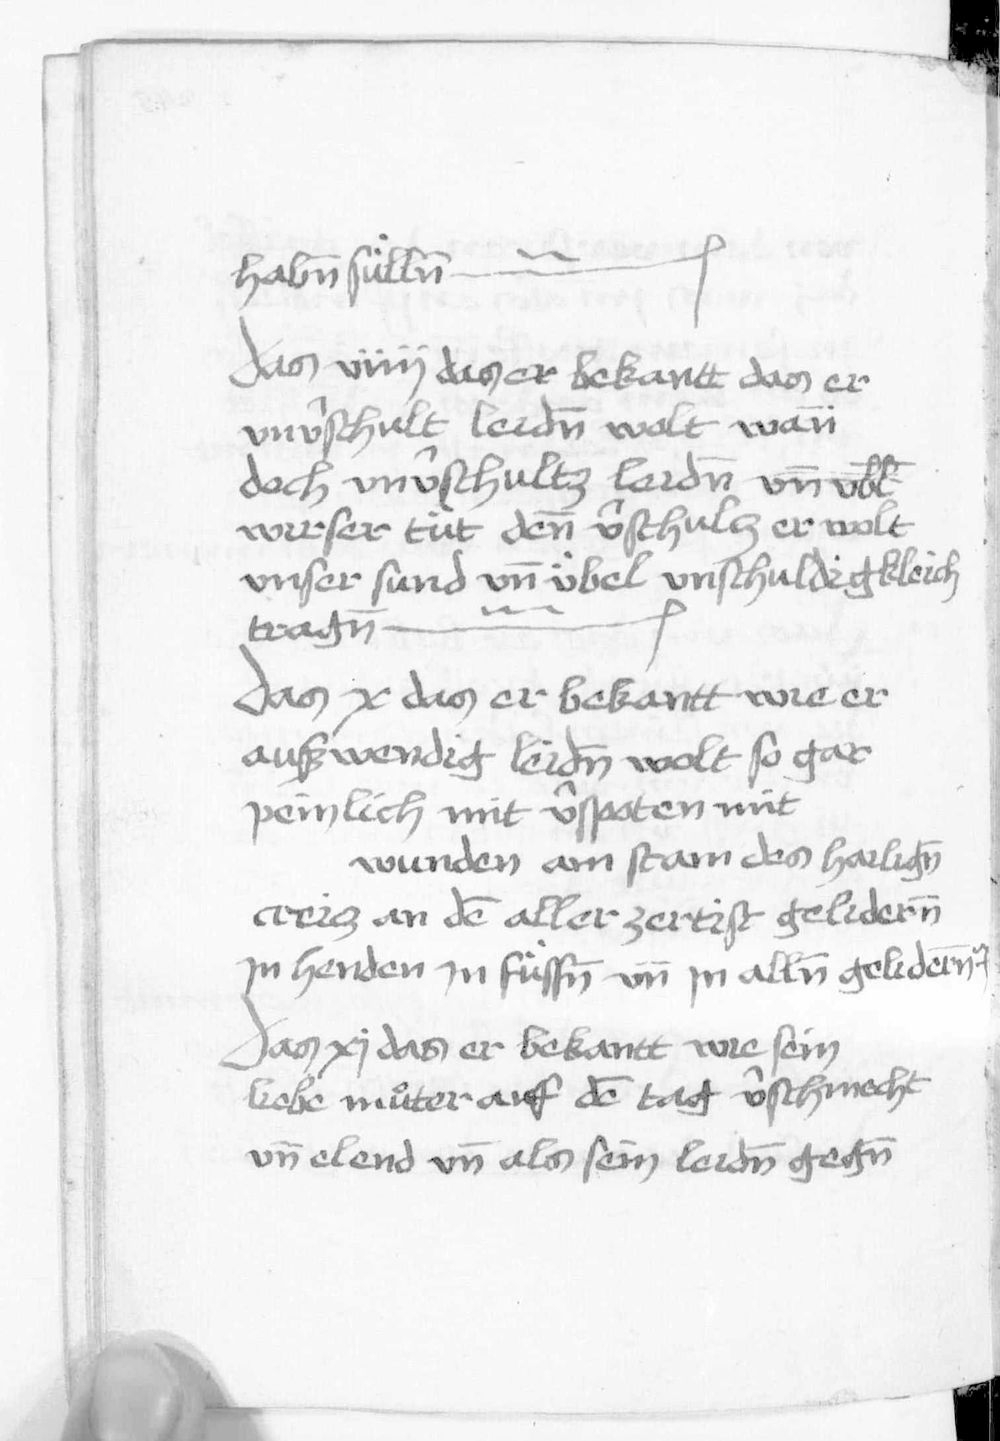 habn̄ süllñ
Das viiij das er bekantt das er
vnv̂schult leidn̄ wolt wan̄
doch vnv̂schultz leidn̄ vn̄ vbl̄
wirser tüt den̄ v̂schulcz er wolt
vnser sund vn̄ übel vnschuldigkleich
tragn̄
Das x das er bekantt wie er
aufzwendig leidn̄ wolt so gar
peinlich mit v̂spoten mit
wunden am stam des hailign̄
creicz an dē aller zertist gelidern̄
in henden in füssn̄ vn̄ in alln̄ gelidern̄
Das xj das er bekantt wie sein
liebe můter auf dē tag v̂schmecht
vn̄ elend vn̄ als sein leidn̄ gegn̄